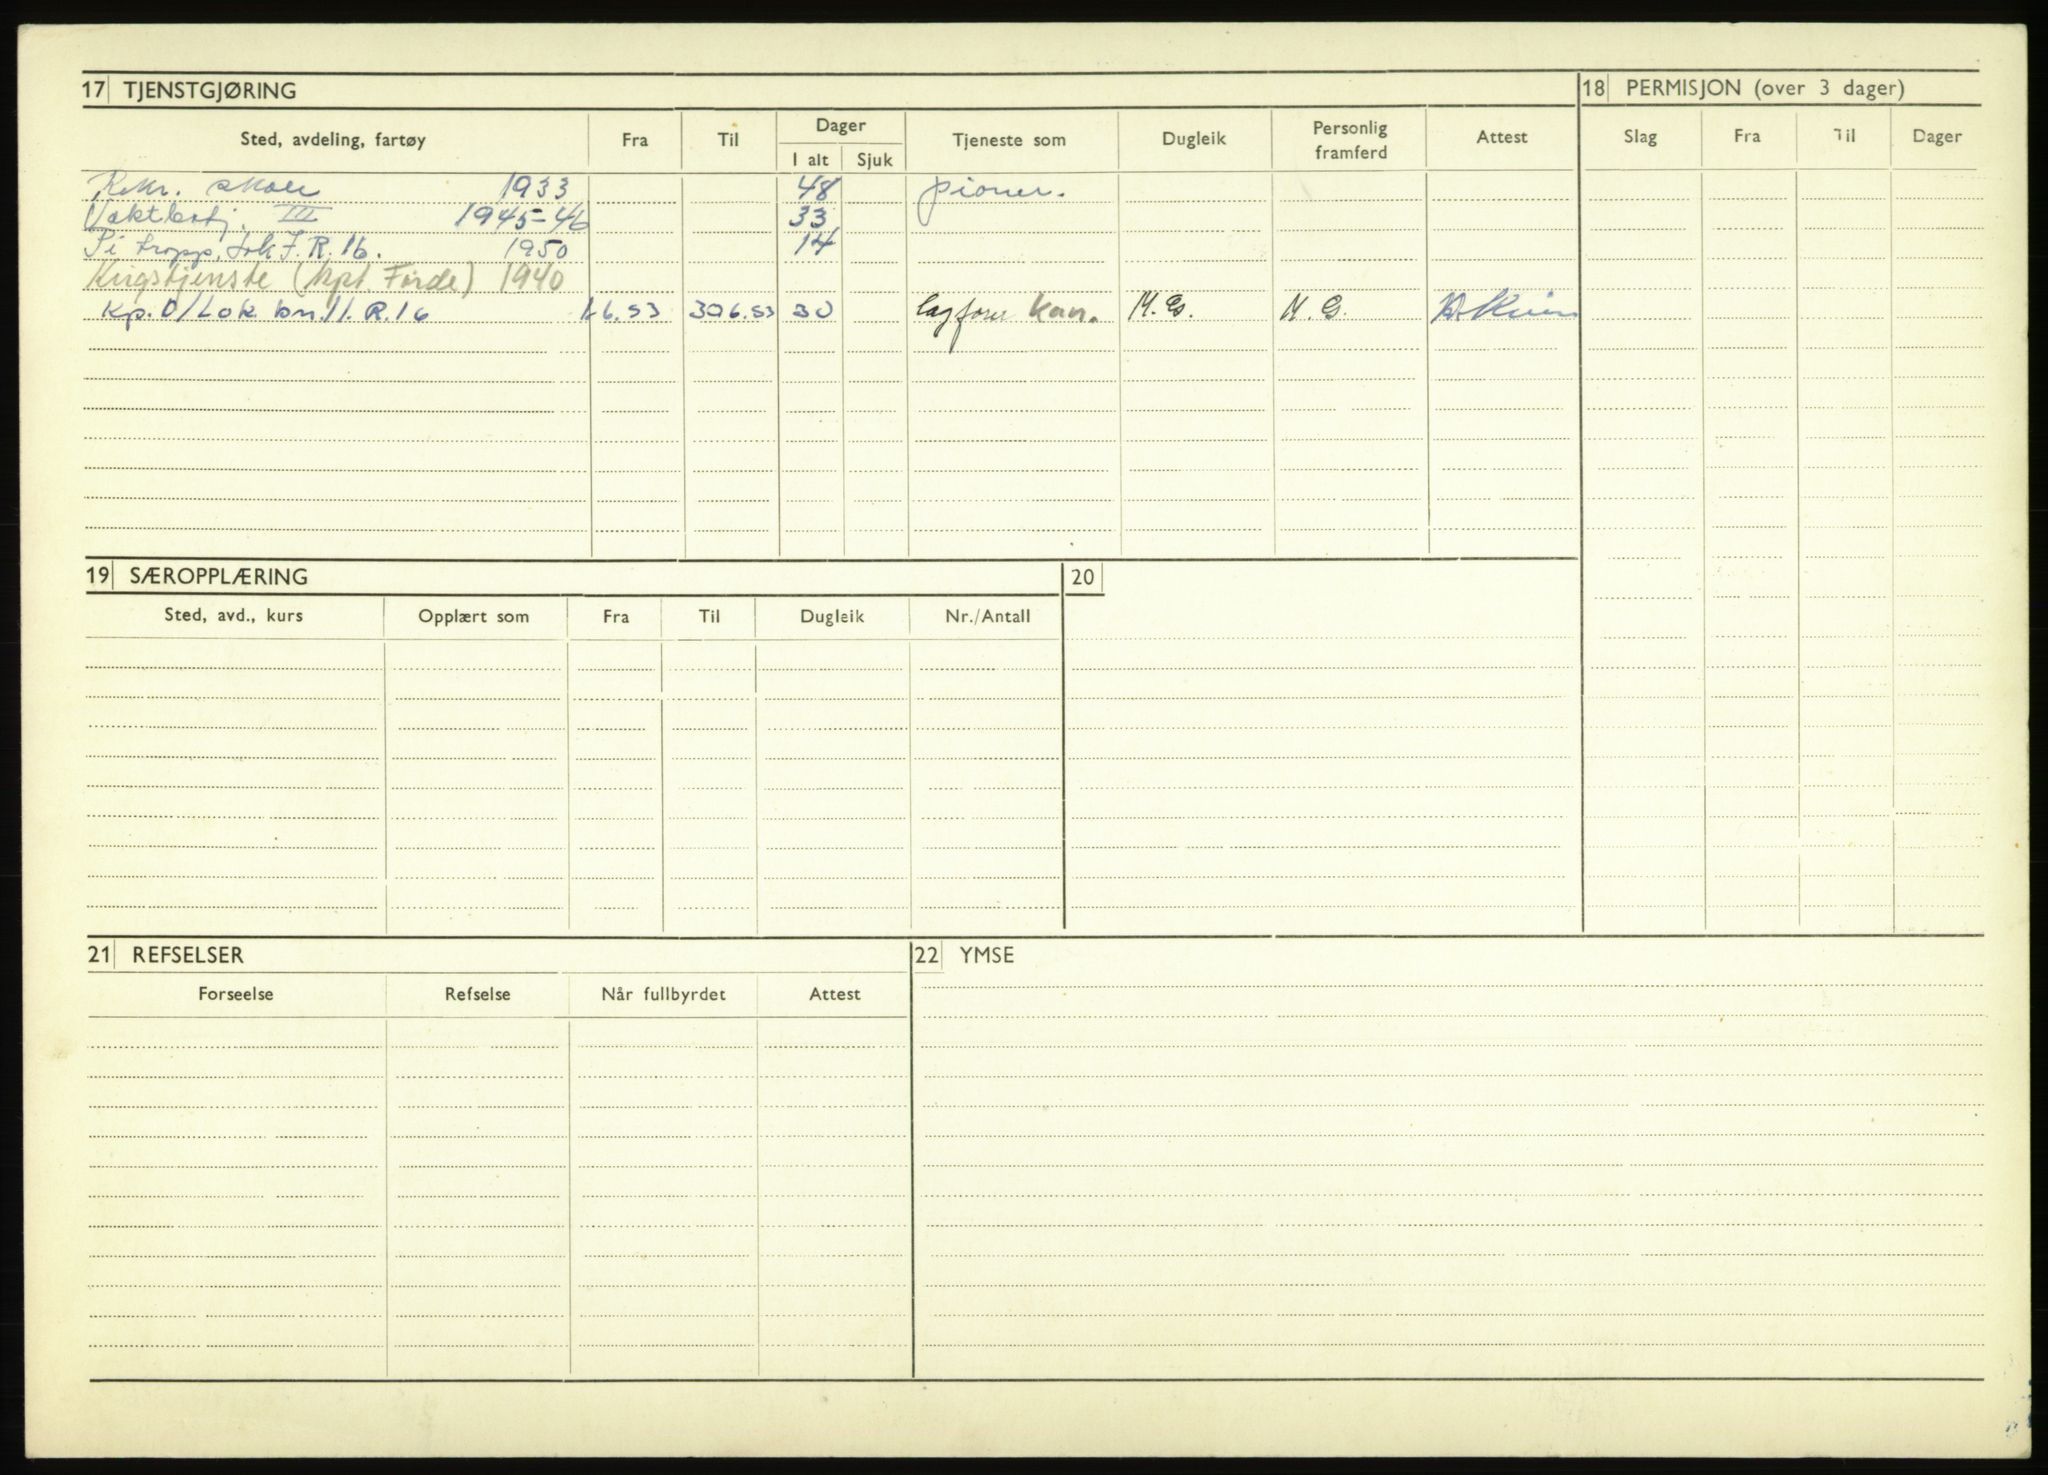 17 TJENSTGJØRING
18 PERMISJON (over 3 dager)
Sted, avdeling, fartøy Fra Til Dager Tjeneste som Dugleik Personlig framferd Attest Slag Fra Til Dager
I alt Sjuk
Rekr. skole 1933 48 pioner.
Vaktbatj. III 1945-46 33
Pi tropp. Lok I.R. 16. 1950 14
Krigstjenste (kpt. Førde) 1940
Kp. D/Lok. bn. I.R.16 1.6.53 30.6.53 30 lagfører kan. M.G. M.G.
19 SÆROPPLÆRING
20
Sted, avd., kurs Opplært som Fra Til Dugleik Nr./Antall
21 REFSELSER
22 YMSE
Forseelse Refselse Når fullbyrdet Attest